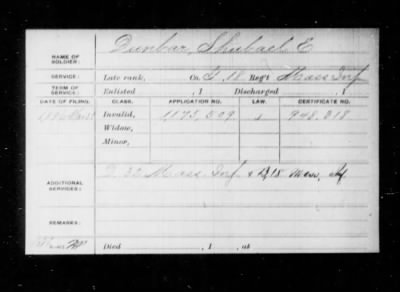 NAME OF SOLDIER: Dunbar, Shubael E
SERVICE: Late rank, Co. G, 18 Reg't Mass Inf
TERM OF SERVICE: Enlisted , 1 Discharged , 1
DATE OF FILING. CLASS. APPLICATION NO. LAW. CERTIFICATE NO.
Invalid, 1175,509 948,318
Widow,
Minor,
ADDITIONAL SERVICES: D 32 Mass Inf & D, 18 Mass, Inf
REMARKS:
Died , 1 , at